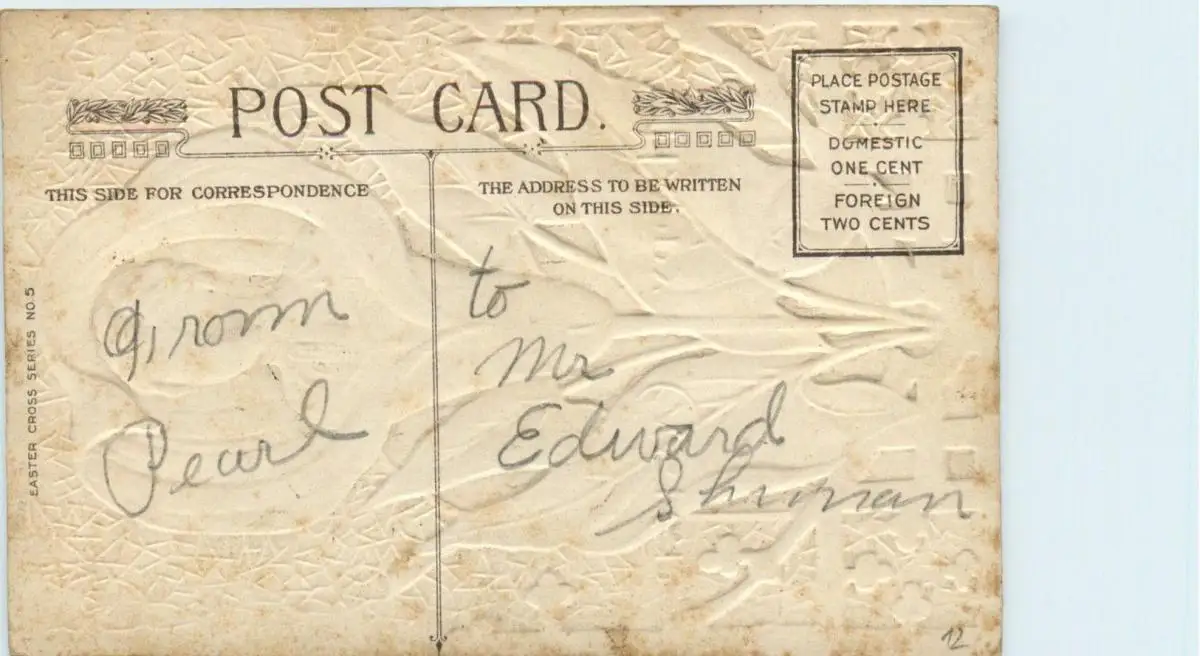 POST CARD.
THIS SIDE FOR CORRESPONDENCE
THE ADDRESS TO BE WRITTEN
ON THIS SIDE.
PLACE POSTAGE
STAMP HERE
DOMESTIC
ONE CENT
FOREIGN
TWO CENTS
EASTER CROSS SERIES NO. 5
From
Pearl
to
Mr
Edward
Shuman
12